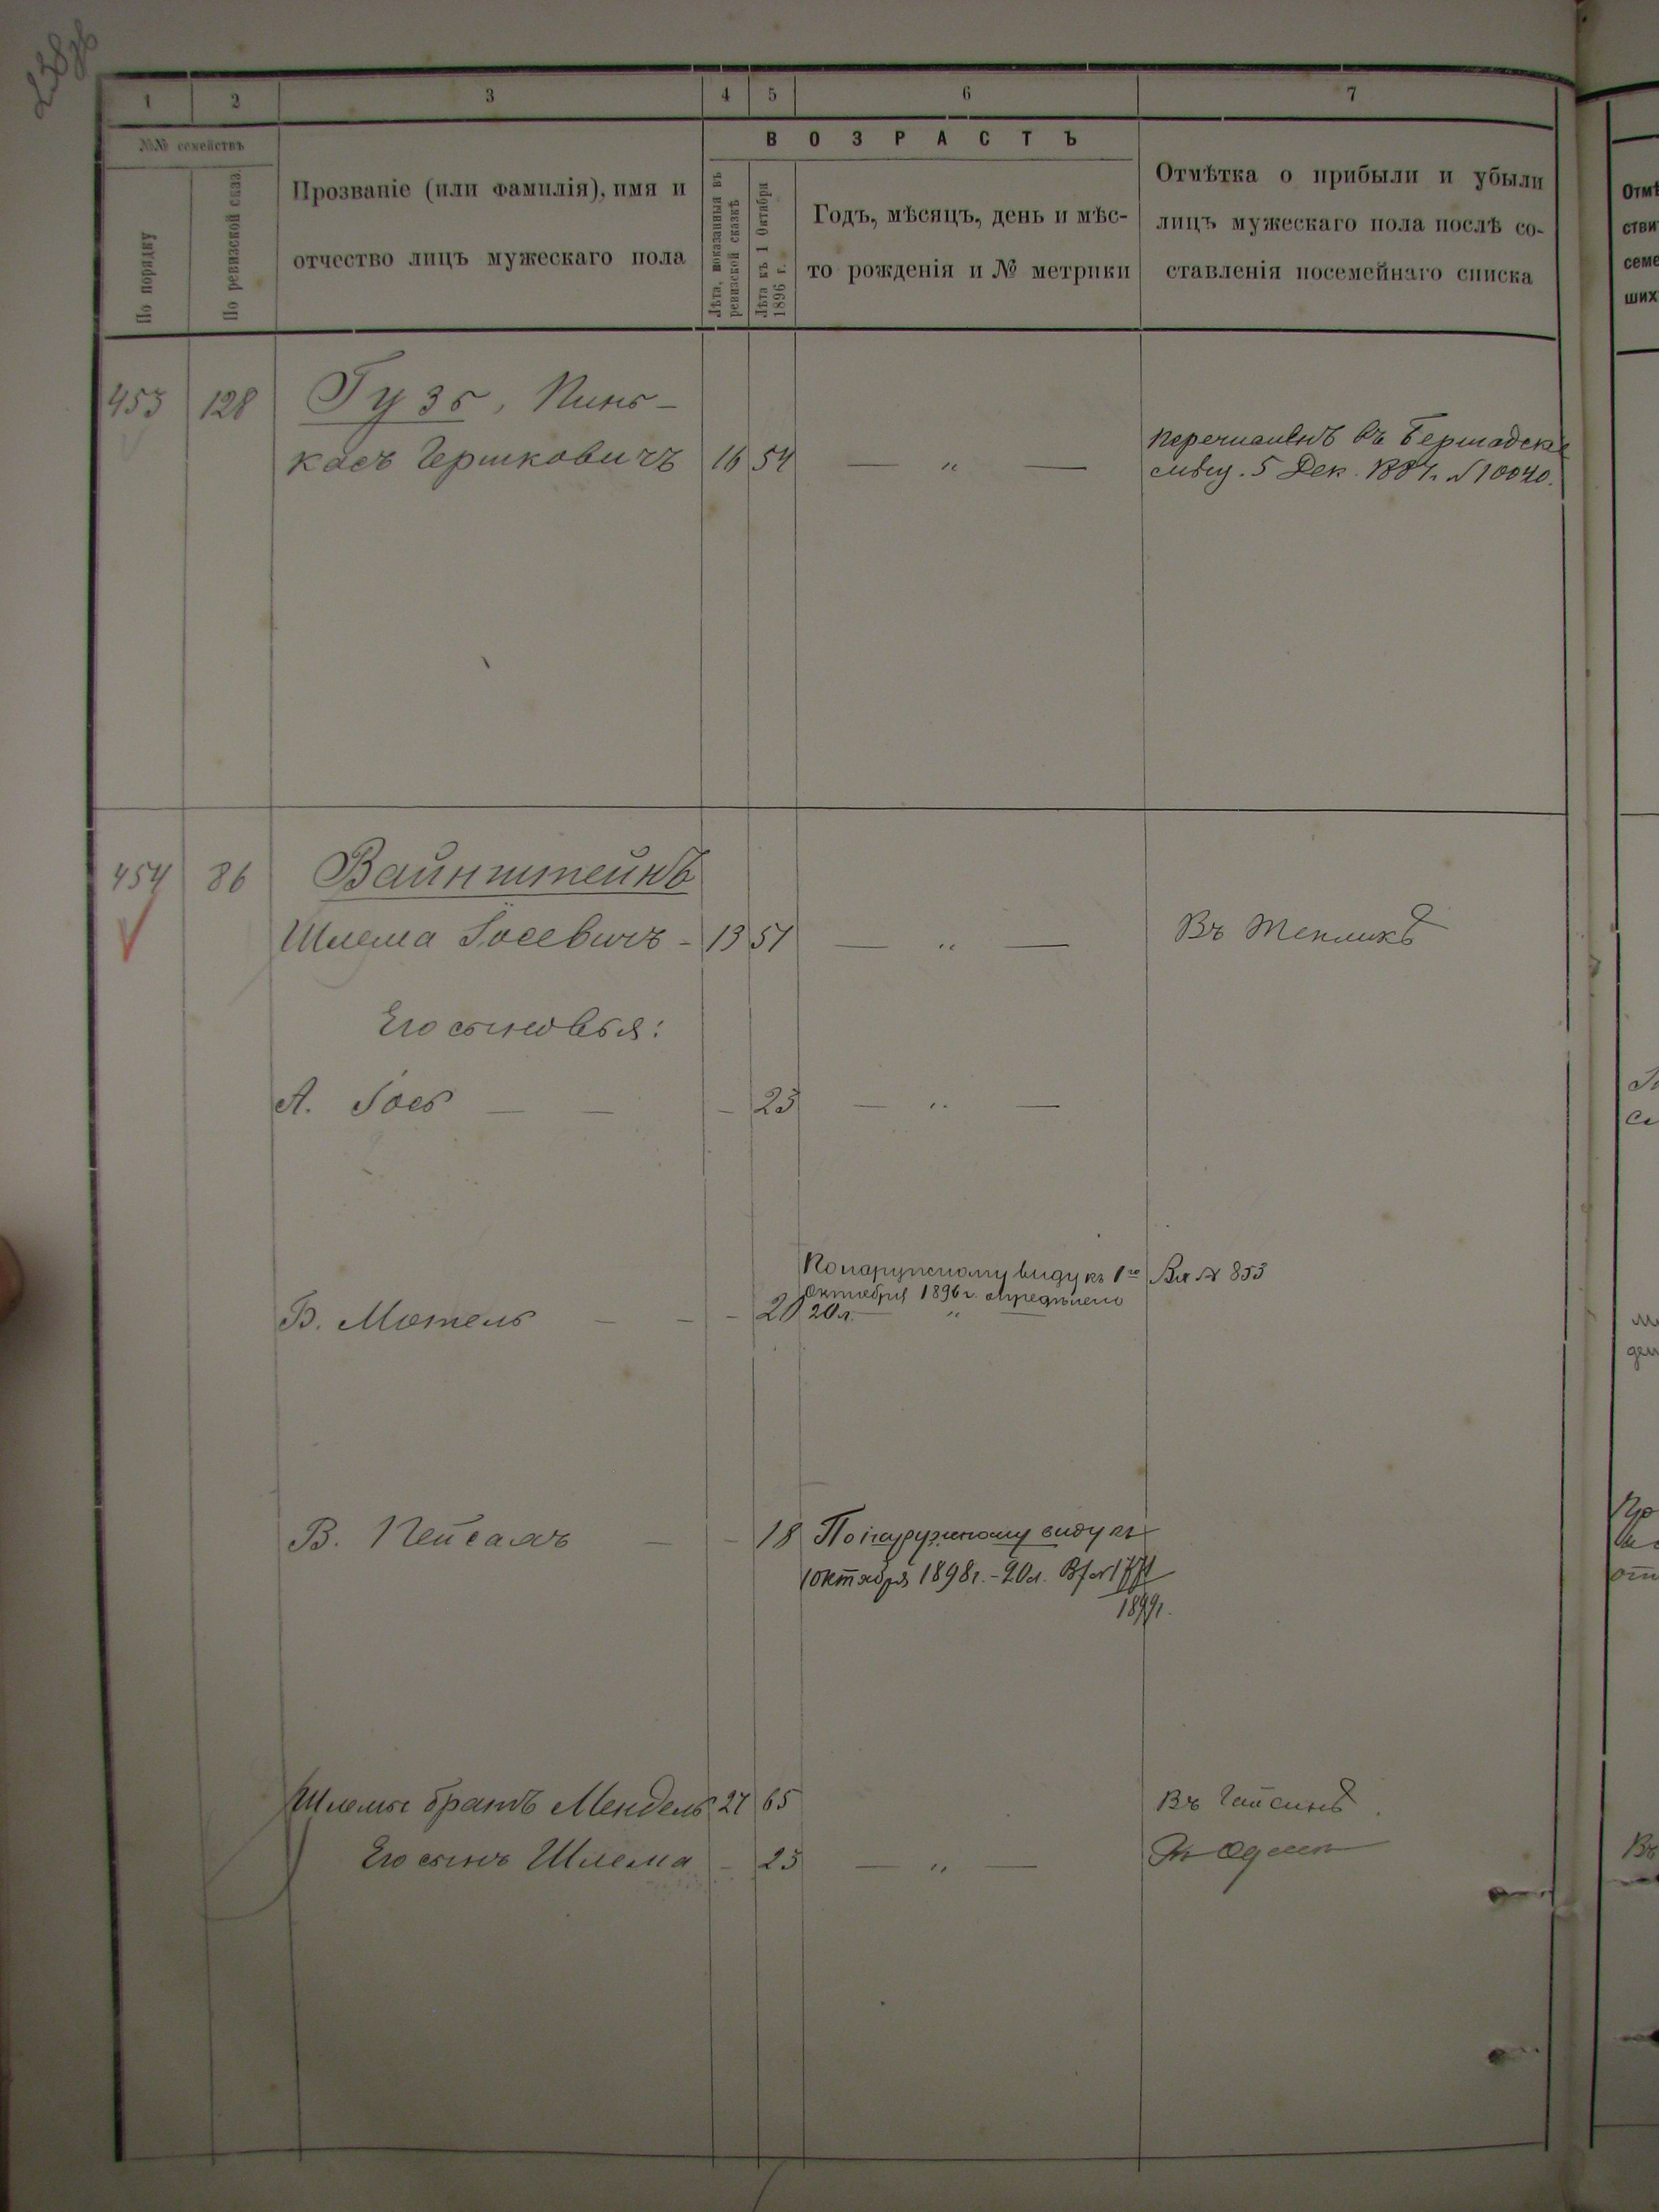 1 2 3 4 5 6 7
№№ семействъ
По порядку
По ревизской сказ.
Прозваніе (или фамилія), имя и
отчество лицъ мужескаго пола
ВОЗРАСТЪ
Лѣта, показанныя въ
ревизской сказкѣ
Лѣта къ 1 Октября
1896 г.
Годъ, мѣсяцъ, день и мѣс-
то рожденія и № метрики
Отмѣтка о прибыли и убыли
лицъ мужескаго пола послѣ со-
ставленія посемейнаго списка
453 128 Гузь, Пинь-
касъ Гершковичъ 16 54 — „ —
Перечисленъ въ Бершадск
5 Дек. № 10040.
454 86 Вайнштейнъ
Шлема Іосевичъ - 13 51 — „ — Въ Тепликѣ
Его сыновья:
А. Іось — — - 23 — „ —
По наружному виду къ 1го № 853
Октября 1896 г. опредѣлено
Б. Мотель — - - 20 20 л. — „ —
В. Пейсахъ — - 18 По наружному виду къ
1 октября 1898 г. - 20 л.
1899 г.
Шлемы братъ Мендель 27 65 Въ Гайсинѣ
Его сынъ Шлема - 23 — „ —